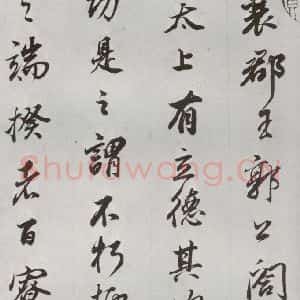 襄郡王郭公閣
太上有立德其
功是之謂不朽抑
之端揆者百寮
Shufawang.Cn